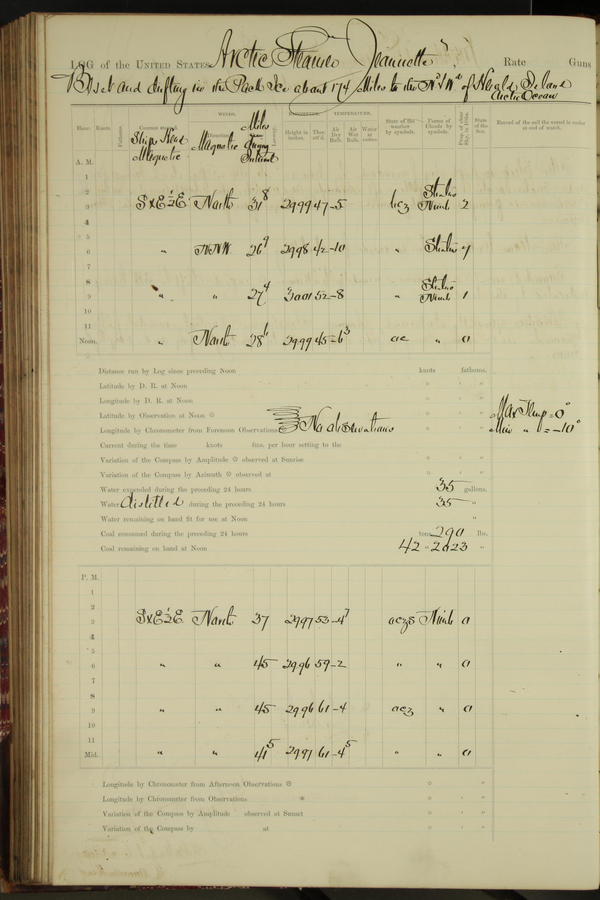 LOG of the United States Arctic Steamer Jeannette, Rate Guns
Beset and drifting in the Pack Ice about 174 Miles to the N & Wd of Herald Island
Arctic Ocean
WINDS. BAROMETER. TEMPERATURE.
Hour. Knots. Fathoms. Ship's Head Magnetic Magnetic Miles Height in inches. Ther. att'd. Air Dry Bulb. Air Wet Bulb. Water at surface. State of the weather by symbols. Forms of Clouds by symbols. State of the Sea. Record of the sail the vessel is under at end of watch.
A. M.
1
2
3 SxE½E North 31⁸ 2999 47 -5 bcz Stratus Nimb 2
4
5
6 " NNW 26⁹ 2998 42 -10 " Stratus 7
7
8
9 " " 27⁴ 3001 52 -8 " Stratus Nimb 1
10
11
Noon. " North 28⁶ 2999 45 -6³ oc " 0
Distance run by Log since preceding Noon knots fathoms.
Latitude by D. R. at Noon
Longitude by D. R. at Noon
Latitude by Observation at Noon Max Temp = 0°
Longitude by Chronometer from Forenoon Observations No observations Min " = -10°
Current during the time knots fms. per hour setting to the
Variation of the Compass by Amplitude observed at Sunrise
Variation of the Compass by Azimuth observed at
Water expended during the preceding 24 hours 35 gallons.
Water distilled during the preceding 24 hours 35 "
Water remaining on hand fit for use at Noon "
Coal consumed during the preceding 24 hours tons 290 lbs.
Coal remaining on hand at Noon 42 " 2023 "
P. M.
1
2
3 SxE½E North 37 2997 53 -4⁷ oczs Nimb 0
4
5
6 " " 45 2996 59 -2 " " 0
7
8
9 " " 45 2996 61 -4 ocz " 0
10
11
Mid. " " 41⁵ 2997 61 -4⁵ " " 0
Longitude by Chronometer from Afternoon Observations
Longitude by Chronometer from Observations
Variation of the Compass by Amplitude observed at Sunset
Variation of the Compass by at